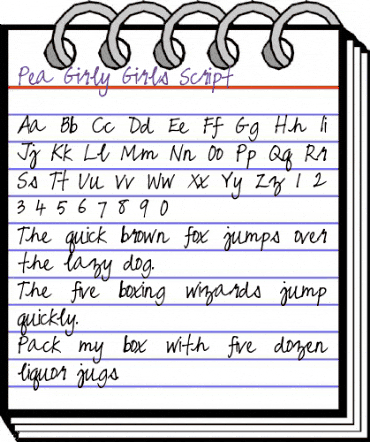 Pea Girly Girls Script
Aa Bb Cc Dd Ee Ff Gg Hh Ii
Jj Kk Ll Mm Nn Oo Pp Qq Rr
Ss Tt Uu Vv Ww Xx Yy Zz 1 2
3 4 5 6 7 8 9 0
The quick brown fox jumps over
the lazy dog.
The five boxing wizards jump
quickly.
Pack my box with five dozen
liquor jugs